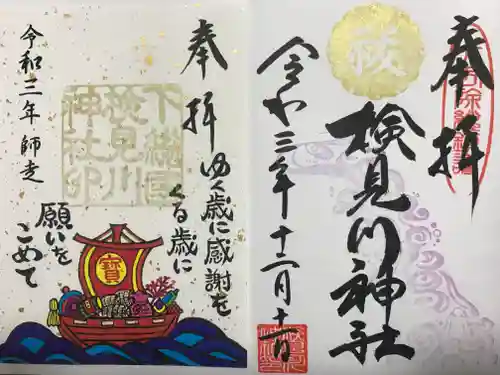 奉拝
令和三年十二月十一日
検見川神社
奉拝
ゆく歳に感謝を
くる歳に
願いを
こめて
令和三年師走
下総国
検見川
神社印
寶